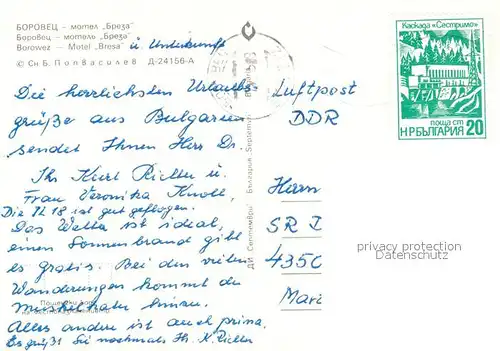 БОРОВЕЦ – мотел „Бреза"
Боровец – мотель „Брезо"
Borowez – Motel „Bresa" u Unterkunft
© Сн Б. Попвасилев Д-24156-А
Каскада «Сестримо»
поща ст
НР БЪЛГАРИЯ 20
Die herrlichsten Urlaubs-
grüße aus Bulgarien
sendet Ihnen Herr Dr.
Ihr Kurt Richter u.
Frau Veronika Knoll,
Die TL 18 ist gut geflogen.
Das Wetter ist ideal,
einen Sonnenbrand gibt
es gratis. Bei den vielen
Wanderungen kommt der
Muskelkater hinzu.
Alles andere ist auch prima.
Es grüßt Sie nochmals Ihr K. Richter
ДИ „Септември" България
Luftpost
DDR
Herrn
SR
4350
privacy protection
Datenschutz